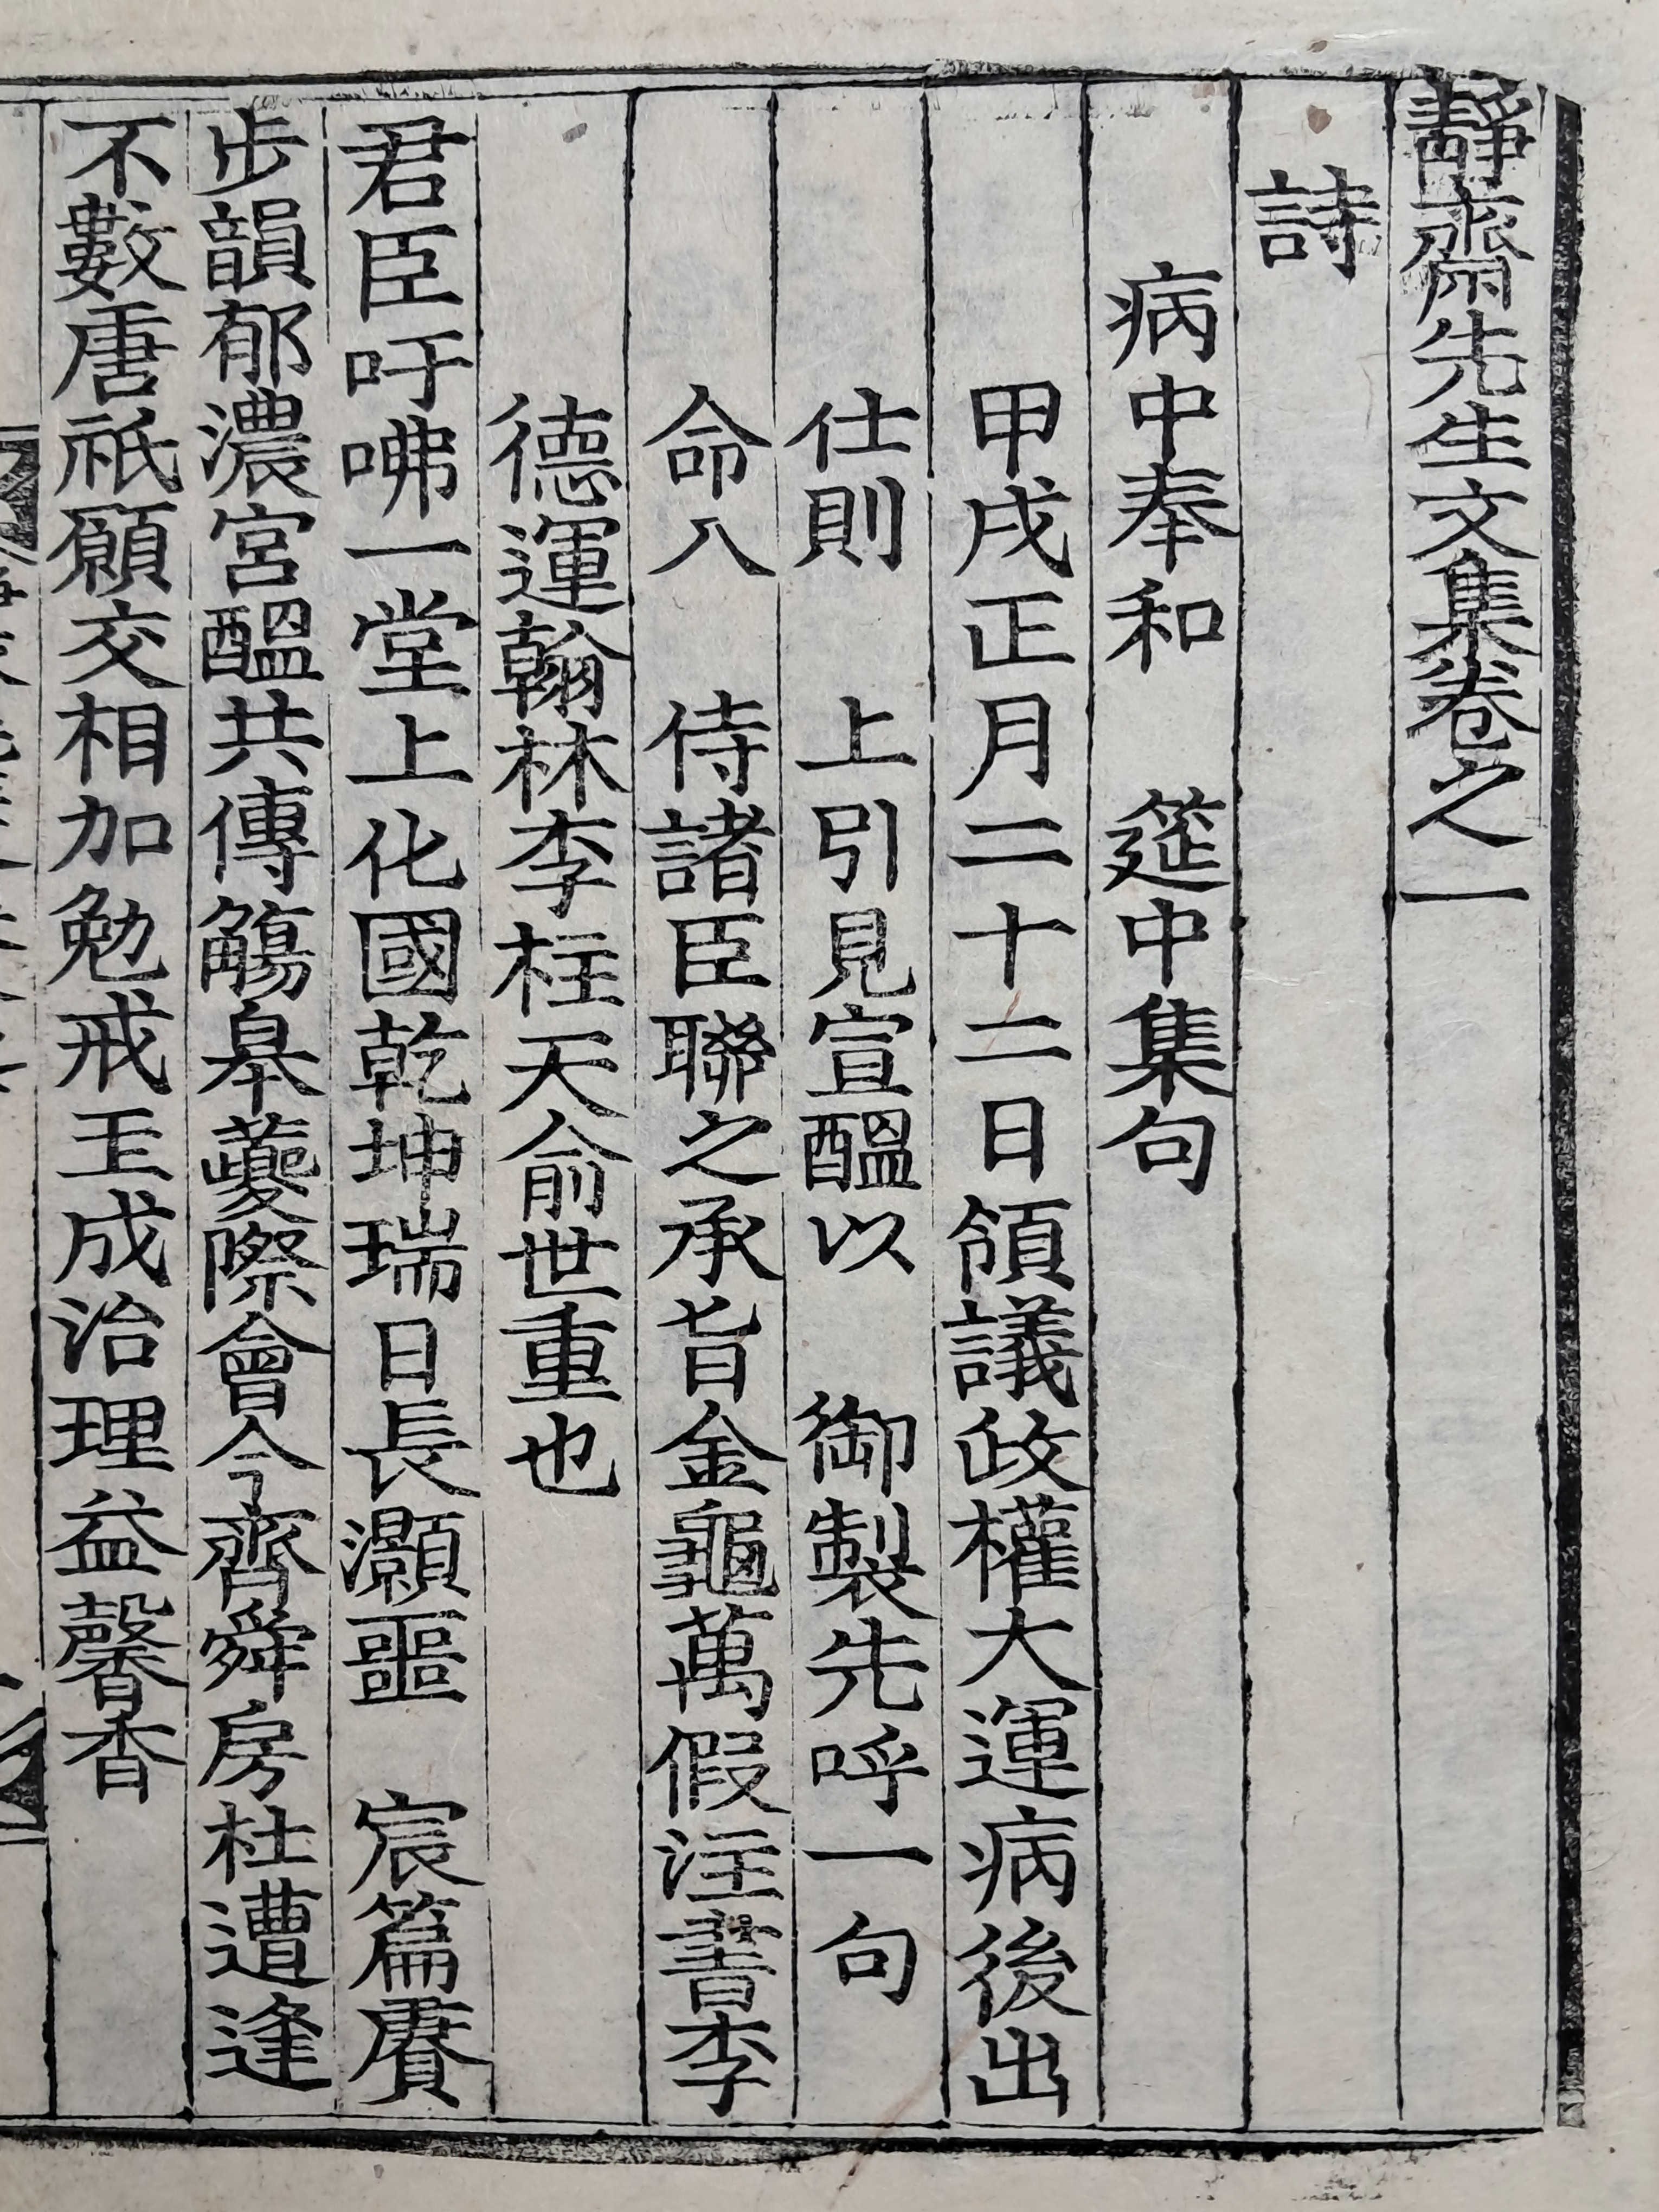 靜齋先生文集卷之一
詩
病中奉和　筵中集句
甲戌正月二十二日領議政權大運病後出
仕則　上引見宣醞以　御製先呼一句
命入　侍諸臣聯之承旨金龜萬假注書李
德運翰林李柱天俞世重也
君臣吁咈一堂上化國乾坤瑞日長灝噩　宸篇賡
步韻郁濃宮醞共傳觴皋夔際會今齊舜房杜遭逢
不數唐祇願交相加勉戒玉成治理益馨香